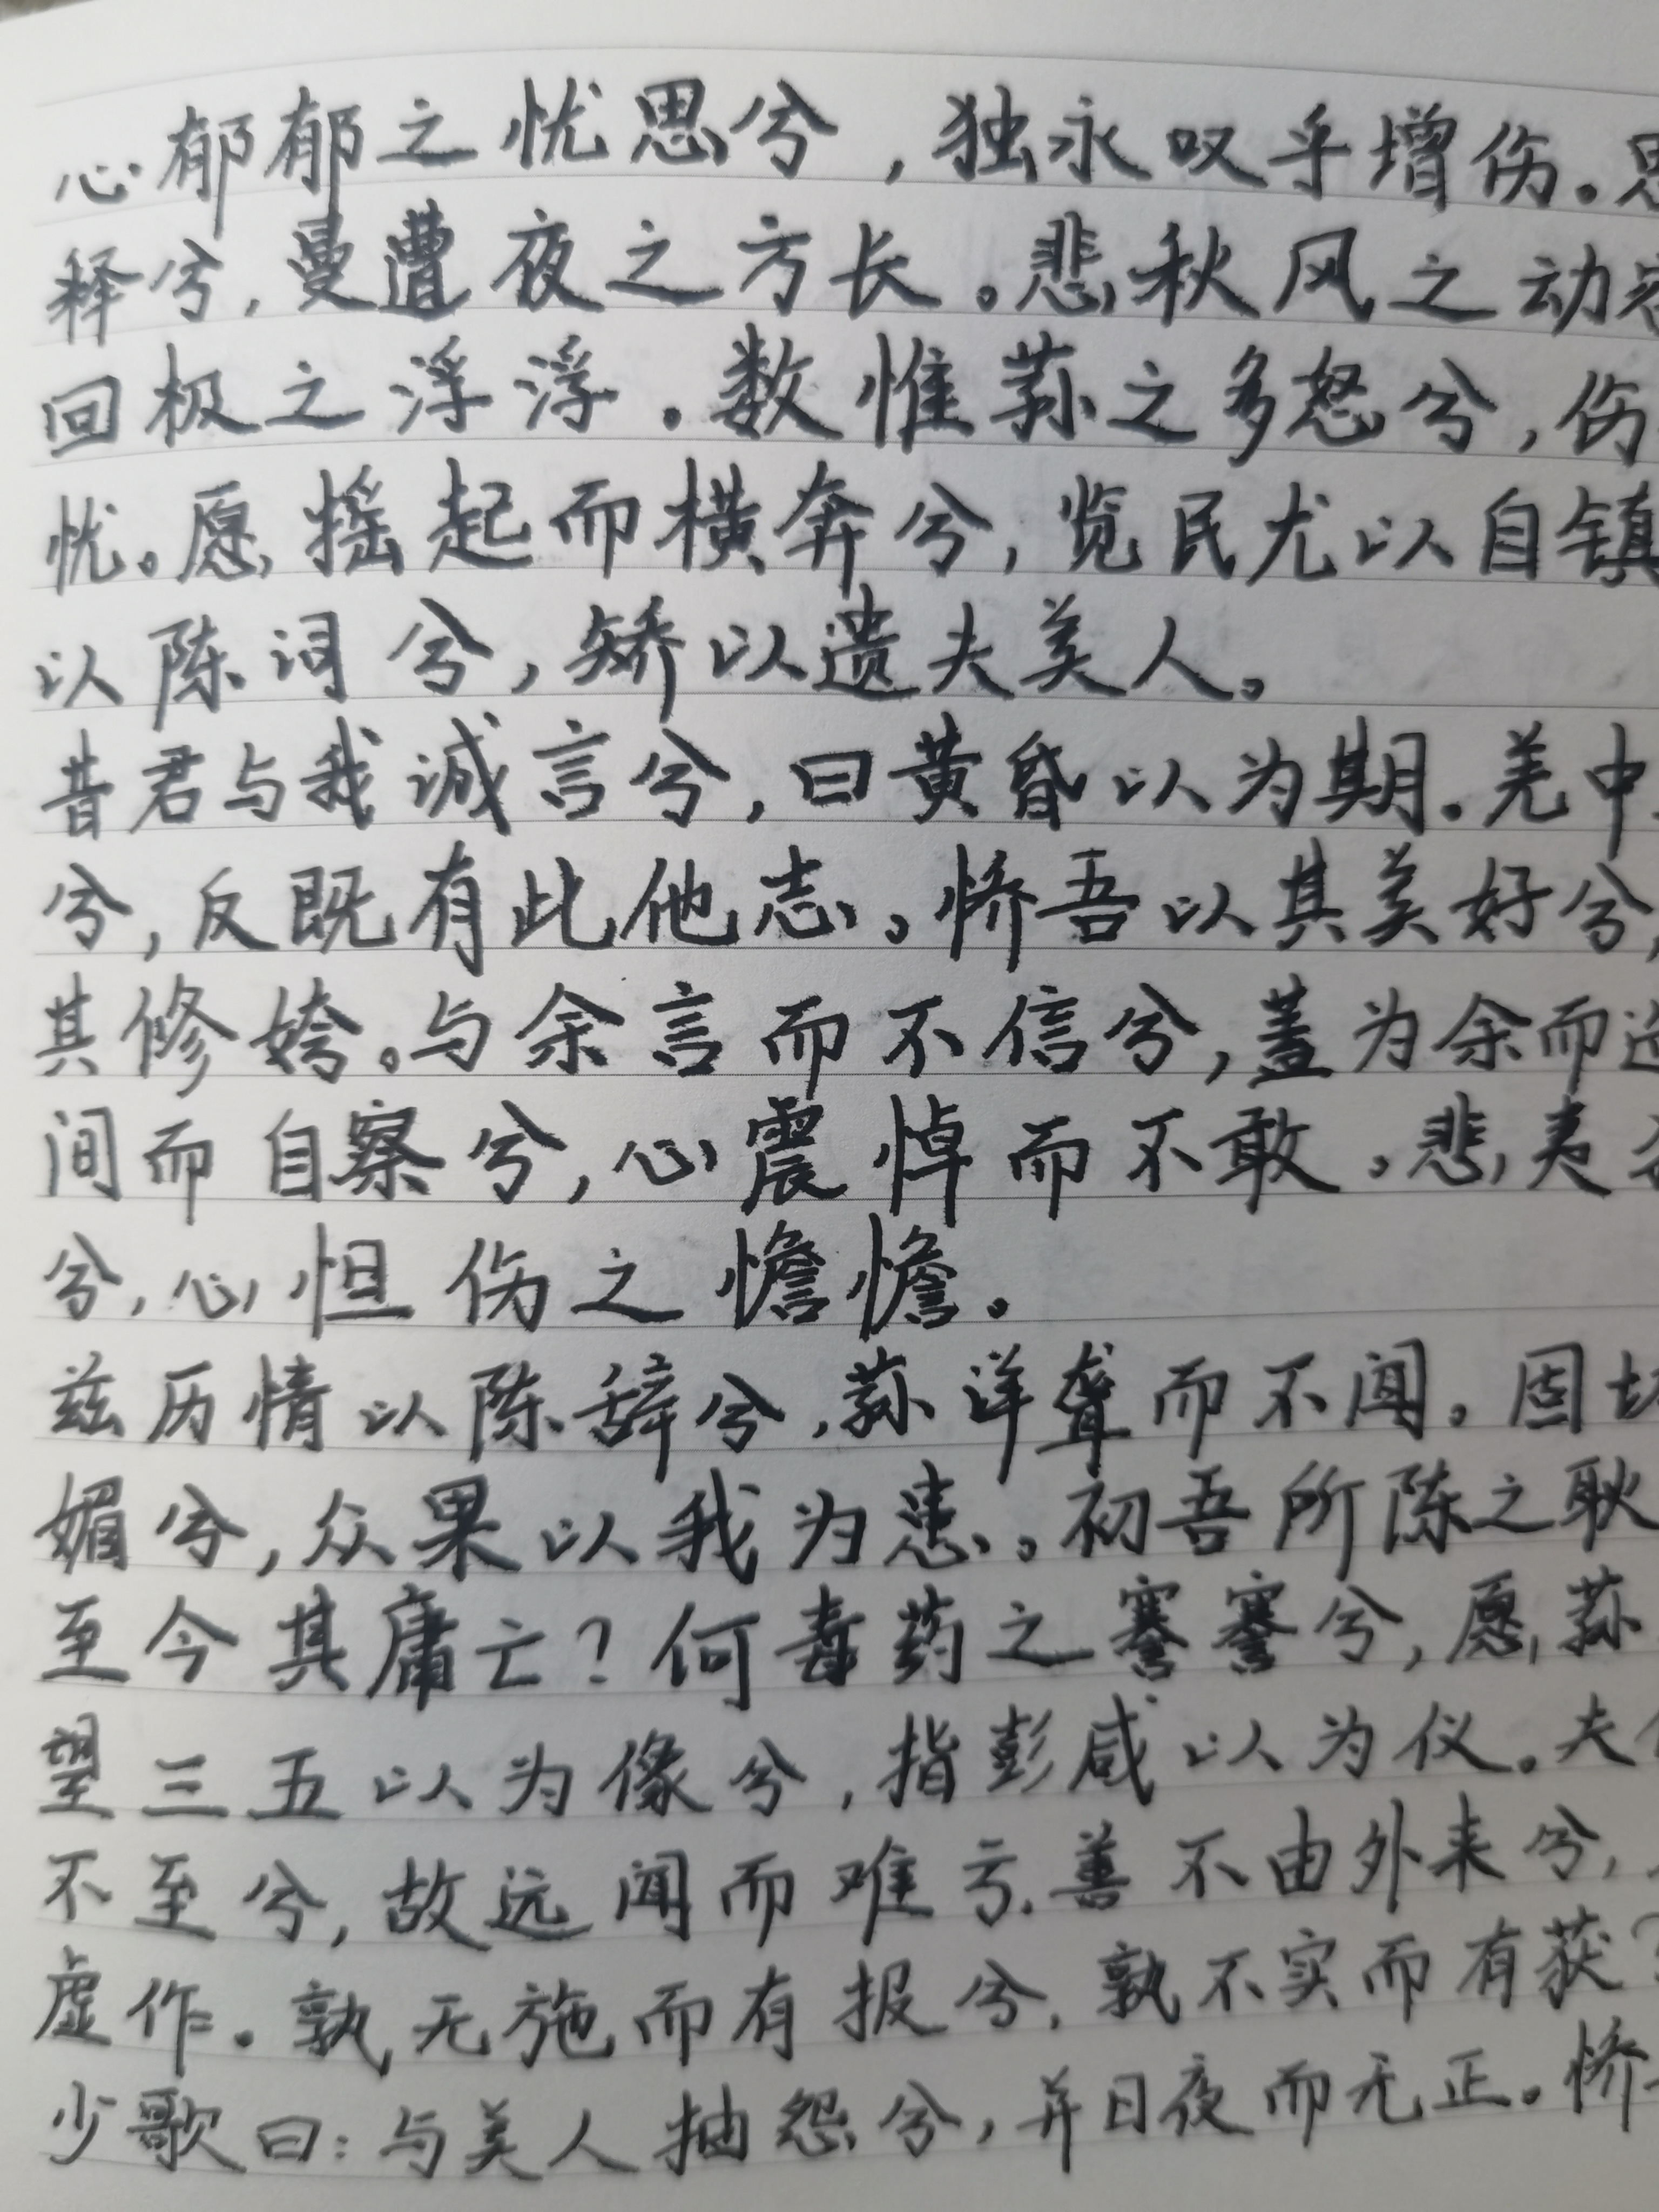 心郁郁之忧思兮,独永叹乎增伤。思
释兮,曼遭夜之方长。悲秋风之动容
回极之浮浮。数惟荪之多怒兮,伤
忧。愿摇起而横奔兮,览民尤以自镇
以陈词兮,矫以遗夫美人。
昔君与我诚言兮,曰黄昏以为期。羌中
兮,反既有此他志。憍吾以其美好兮,
其修姱。与余言而不信兮,盖为余而造
间而自察兮,心震悼而不敢。悲夷
兮,心怛伤之憺憺。
兹历情以陈辞兮,荪详聋而不闻。固切
媚兮,众果以我为患。初吾所陈之耿
至今其庸亡?何毒药之謇謇兮,愿荪
望三五以为像兮,指彭咸以为仪。夫
不至兮,故远闻而难亏。善不由外来兮,
虚作。孰无施而有报兮,孰不实而有获?
少歌曰:与美人抽怨兮,并日夜而无正。憍